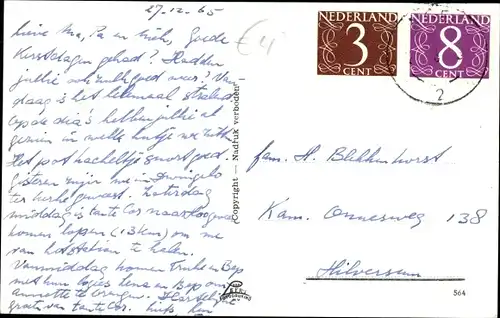 27-12-65
lieve Ma, Pa en Henk, Goede
Kerstdagen gehad? Hadden
jullie ook zulk goed weer? Van-
daag is het helemaal stralend
op de dia's hebben jullie al
gezien in welk hutje we zitten
Het potkacheltje snort goed.
Gisteren zijn we in Dwingelo
ter kerke geweest. Zaterdag
middag is tante Cor naar Hoogeveen
komen lopen (13 km) om me
van het station te halen.
Vanmiddag komen Truke en Bep
met hun logées Lena en Bep om
Annette te brengen. Hartelijke
groeten van tante Cor.
Copyright — Nadruk verboden
NEDERLAND
3
CENT
NEDERLAND
8
CENT
2
fam. H. Blekkenhorst
Kam. Onnesweg 138
Hilversum
564